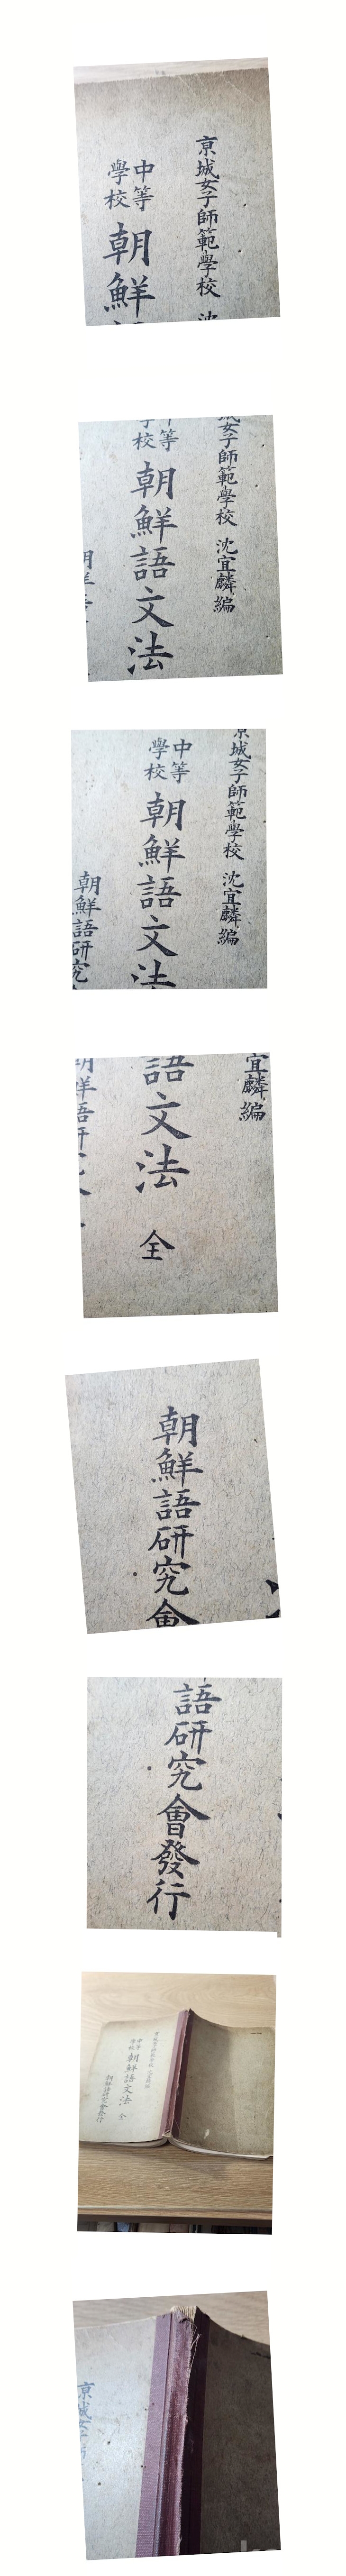 京城女子師範學校
中等
學校
朝鮮
女子師範學校 沈宜麟編
等
校
朝鮮語文法
京城女子師範學校 沈宜麟編
中等
學校
朝鮮語文法
朝鮮語研究
宜麟編
語文法 全
鮮語研
朝鮮語研究會
語研究會發行
京城女子師範學校 沈宜麟編
中等
學校
朝鮮語文法 全
朝鮮語研究會發行
京城女子